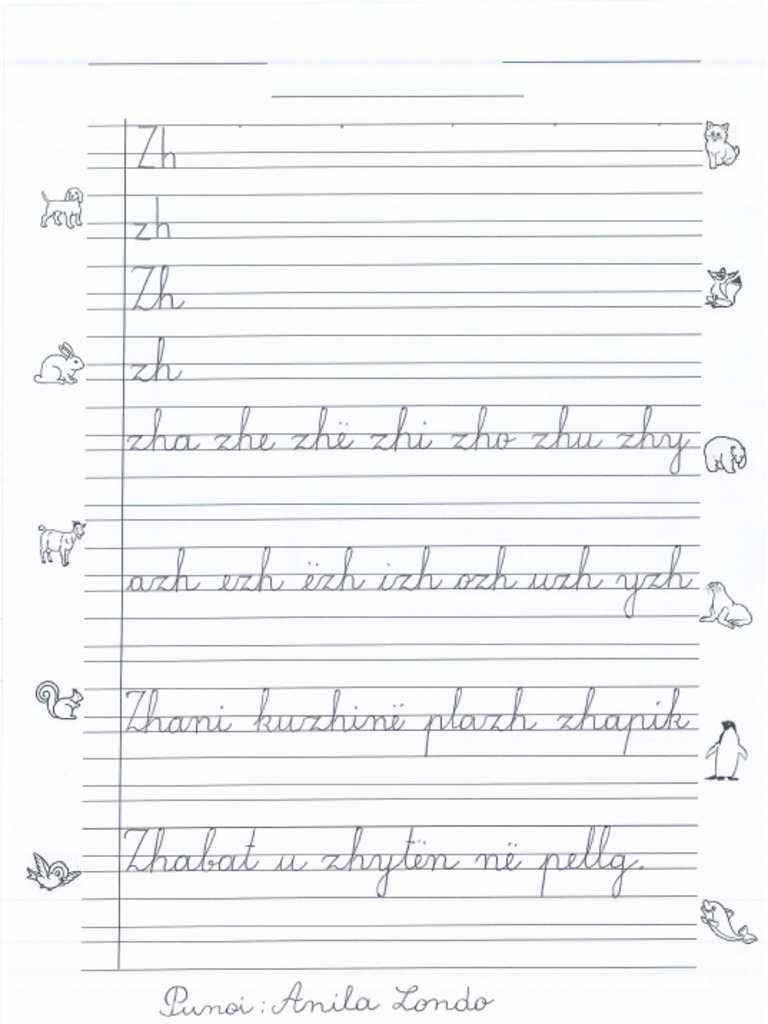 Zh
zh
Zh
zh
zha zhe zhë zhi zho zhu zhy
azh ezh ëzh izh ozh uzh yzh
Zhani kuzhinë plazh zhapik
Zhabat u zhytën në pellg.
Punoi: Anila Londo